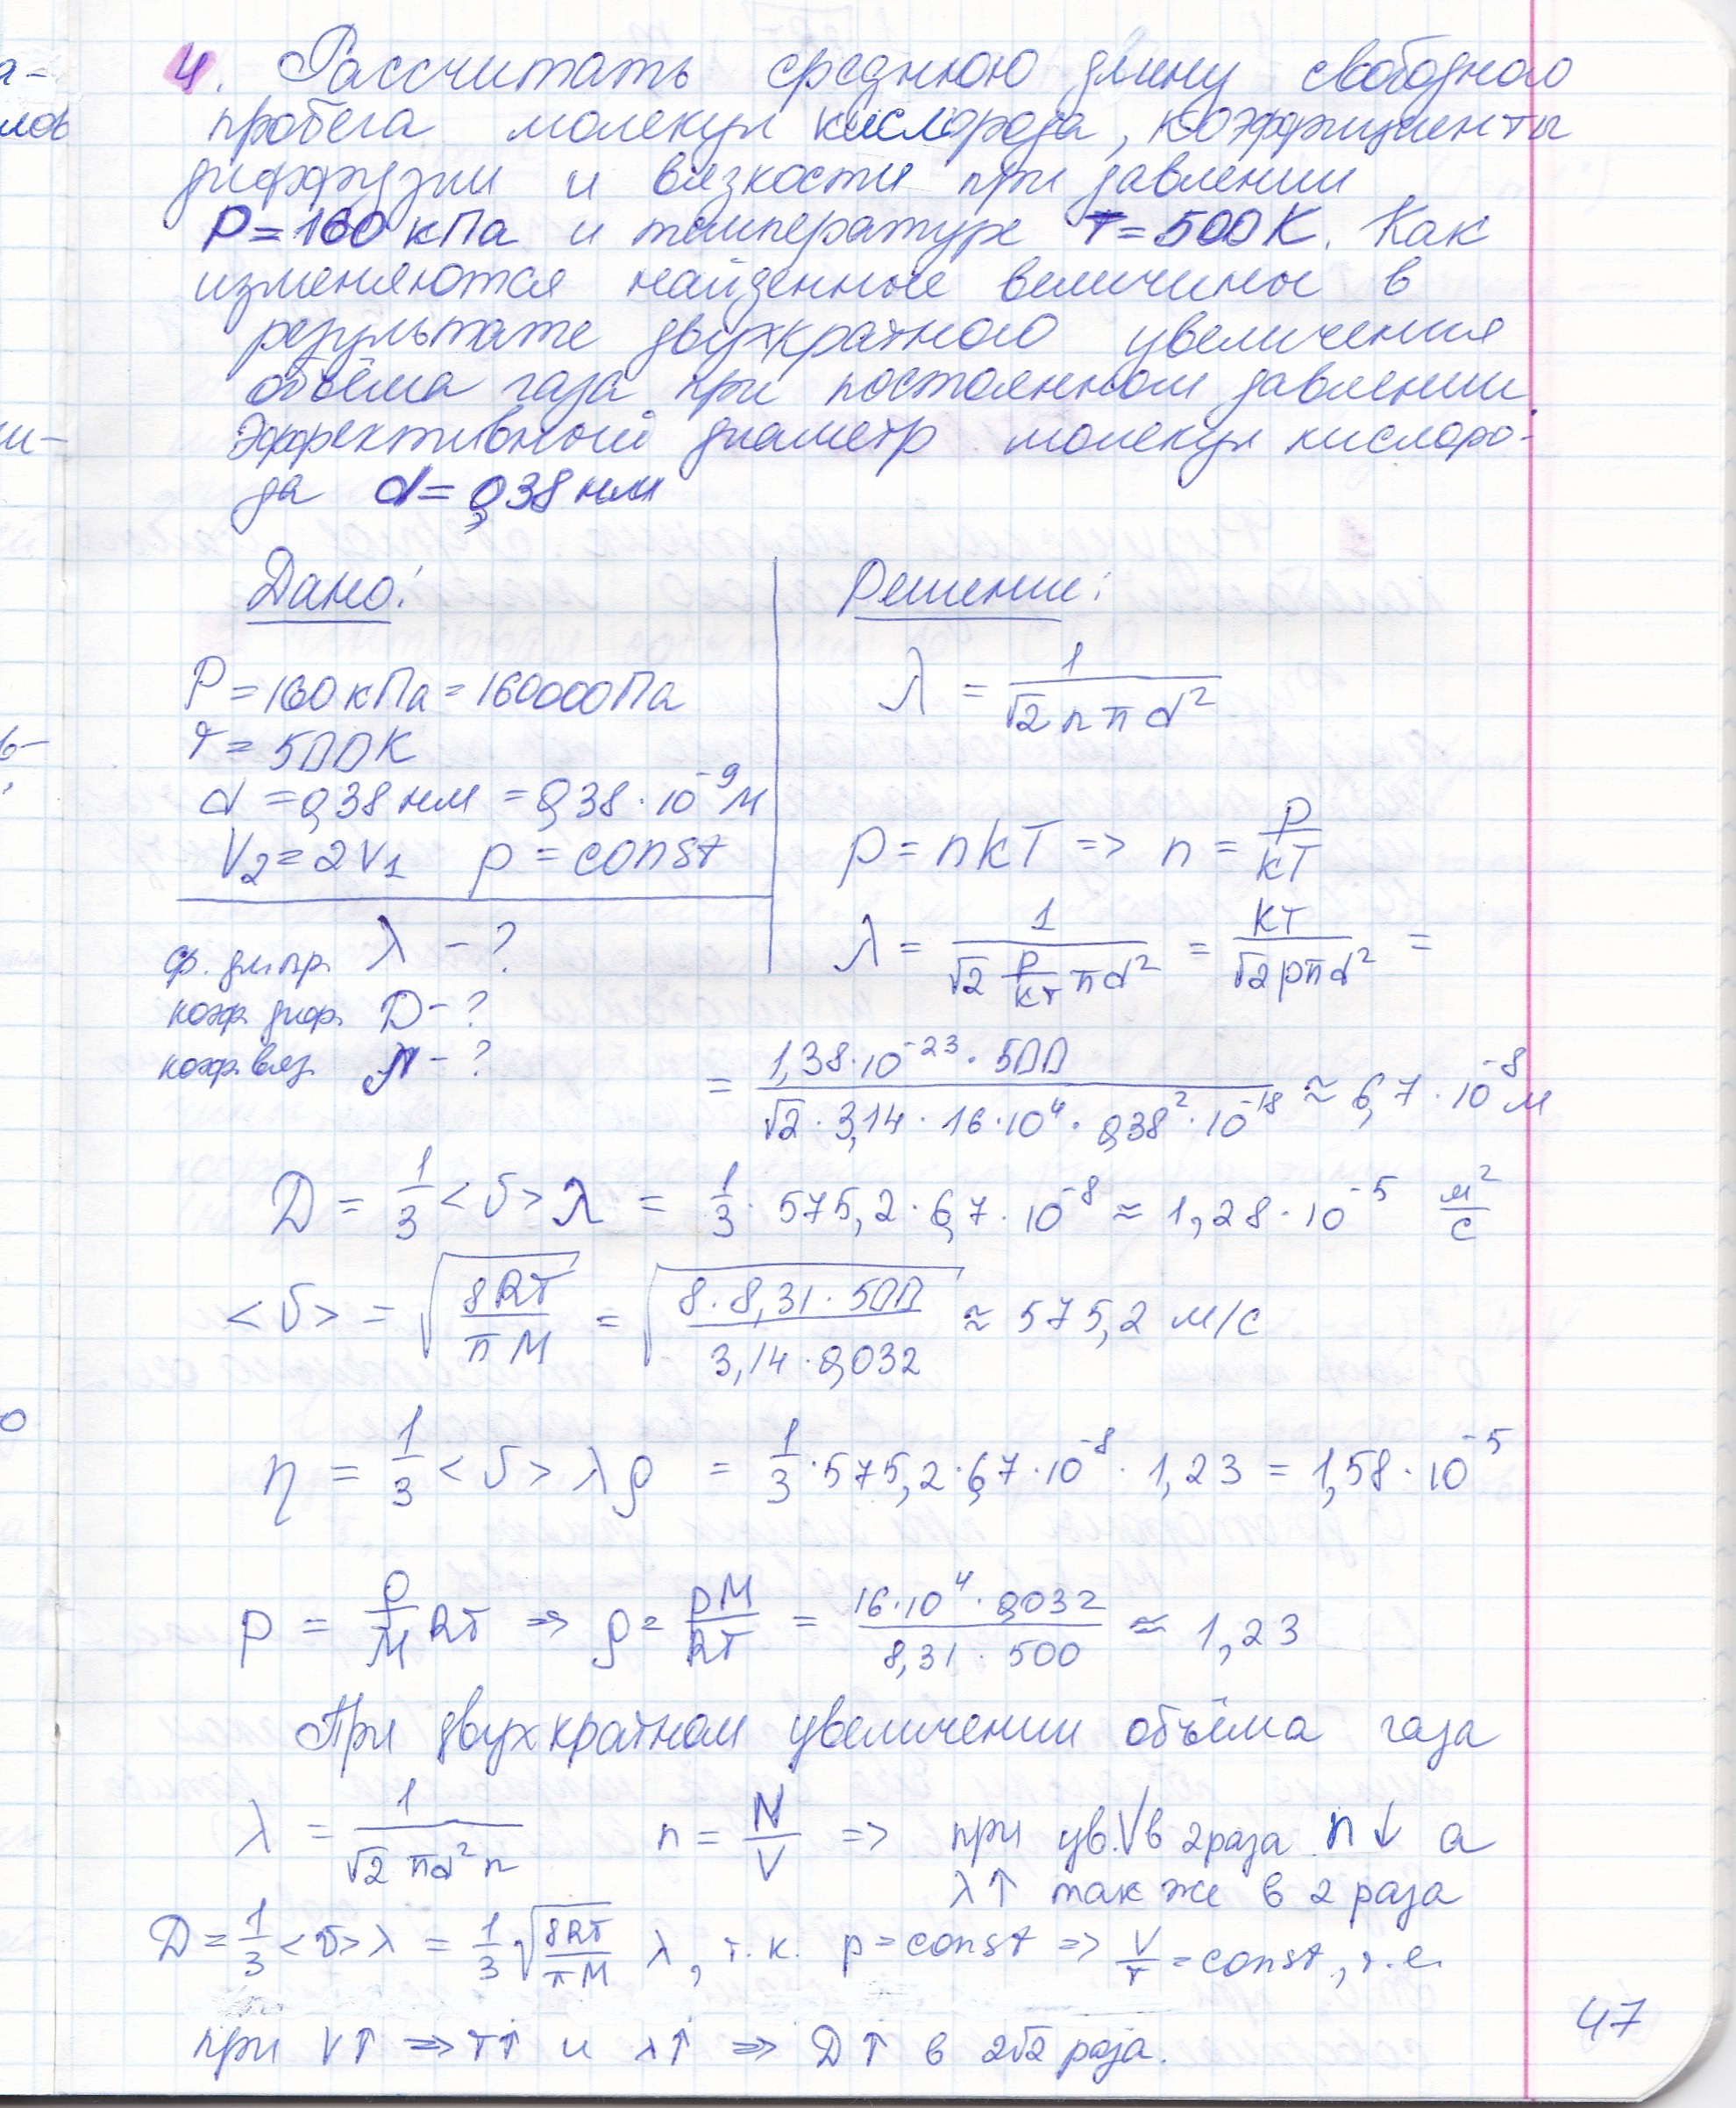 а-
лов
ш-
ь-
о
4. Рассчитать среднюю длину свободного
пробега молекул кислорода, коэффициенты
диффузии и вязкости при давлении
P = 160 кПа и температуре T = 500 К. Как
изменяются найденные величины в
результате двухкратного увеличения
объёма газа при постоянном давлении.
Эффективный диаметр молекул кислоро-
да d = 0,38 нм
Дано:
P = 160 кПа = 160000 Па
T = 500 К
d = 0,38 нм = 0,38 · 10⁻⁹ м
V₂ = 2V₁ p = const
ф. дл. пр. λ - ?
коэф. диф. D - ?
коэф. вяз. η - ?
Решение:
λ = 1/(√2 n π d²)
p = nkT => n = p/(kT)
λ = 1/(√2 (p/(kT)) π d²) = kT/(√2 p π d²) =
= (1,38 · 10⁻²³ · 500)/(√2 · 3,14 · 16 · 10⁴ · 0,38² · 10⁻¹⁸) ≈ 6,7 · 10⁻⁸ м
D = 1/3 <υ> λ = 1/3 · 575,2 · 6,7 · 10⁻⁸ ≈ 1,28 · 10⁻⁵ м²/с
<υ> = √(8RT/(πM)) = √((8 · 8,31 · 500)/(3,14 · 0,032)) ≈ 575,2 м/с
η = 1/3 <υ> λ ρ = 1/3 · 575,2 · 6,7 · 10⁻⁸ · 1,23 = 1,58 · 10⁻⁵
p = (ρ/M) RT => ρ = pM/(RT) = (16 · 10⁴ · 0,032)/(8,31 · 500) ≈ 1,23
При двухкратном увеличении объёма газа
λ = 1/(√2 π d² n) n = N/V => при ув. V в 2 раза n↓ а
λ↑ так же в 2 раза
D = 1/3 <υ> λ = 1/3 √(8RT/(πM)) λ, т.к. p = const => V/T = const, т.е.
при V↑ => T↑ и λ↑ => D↑ в 2√2 раза.
47